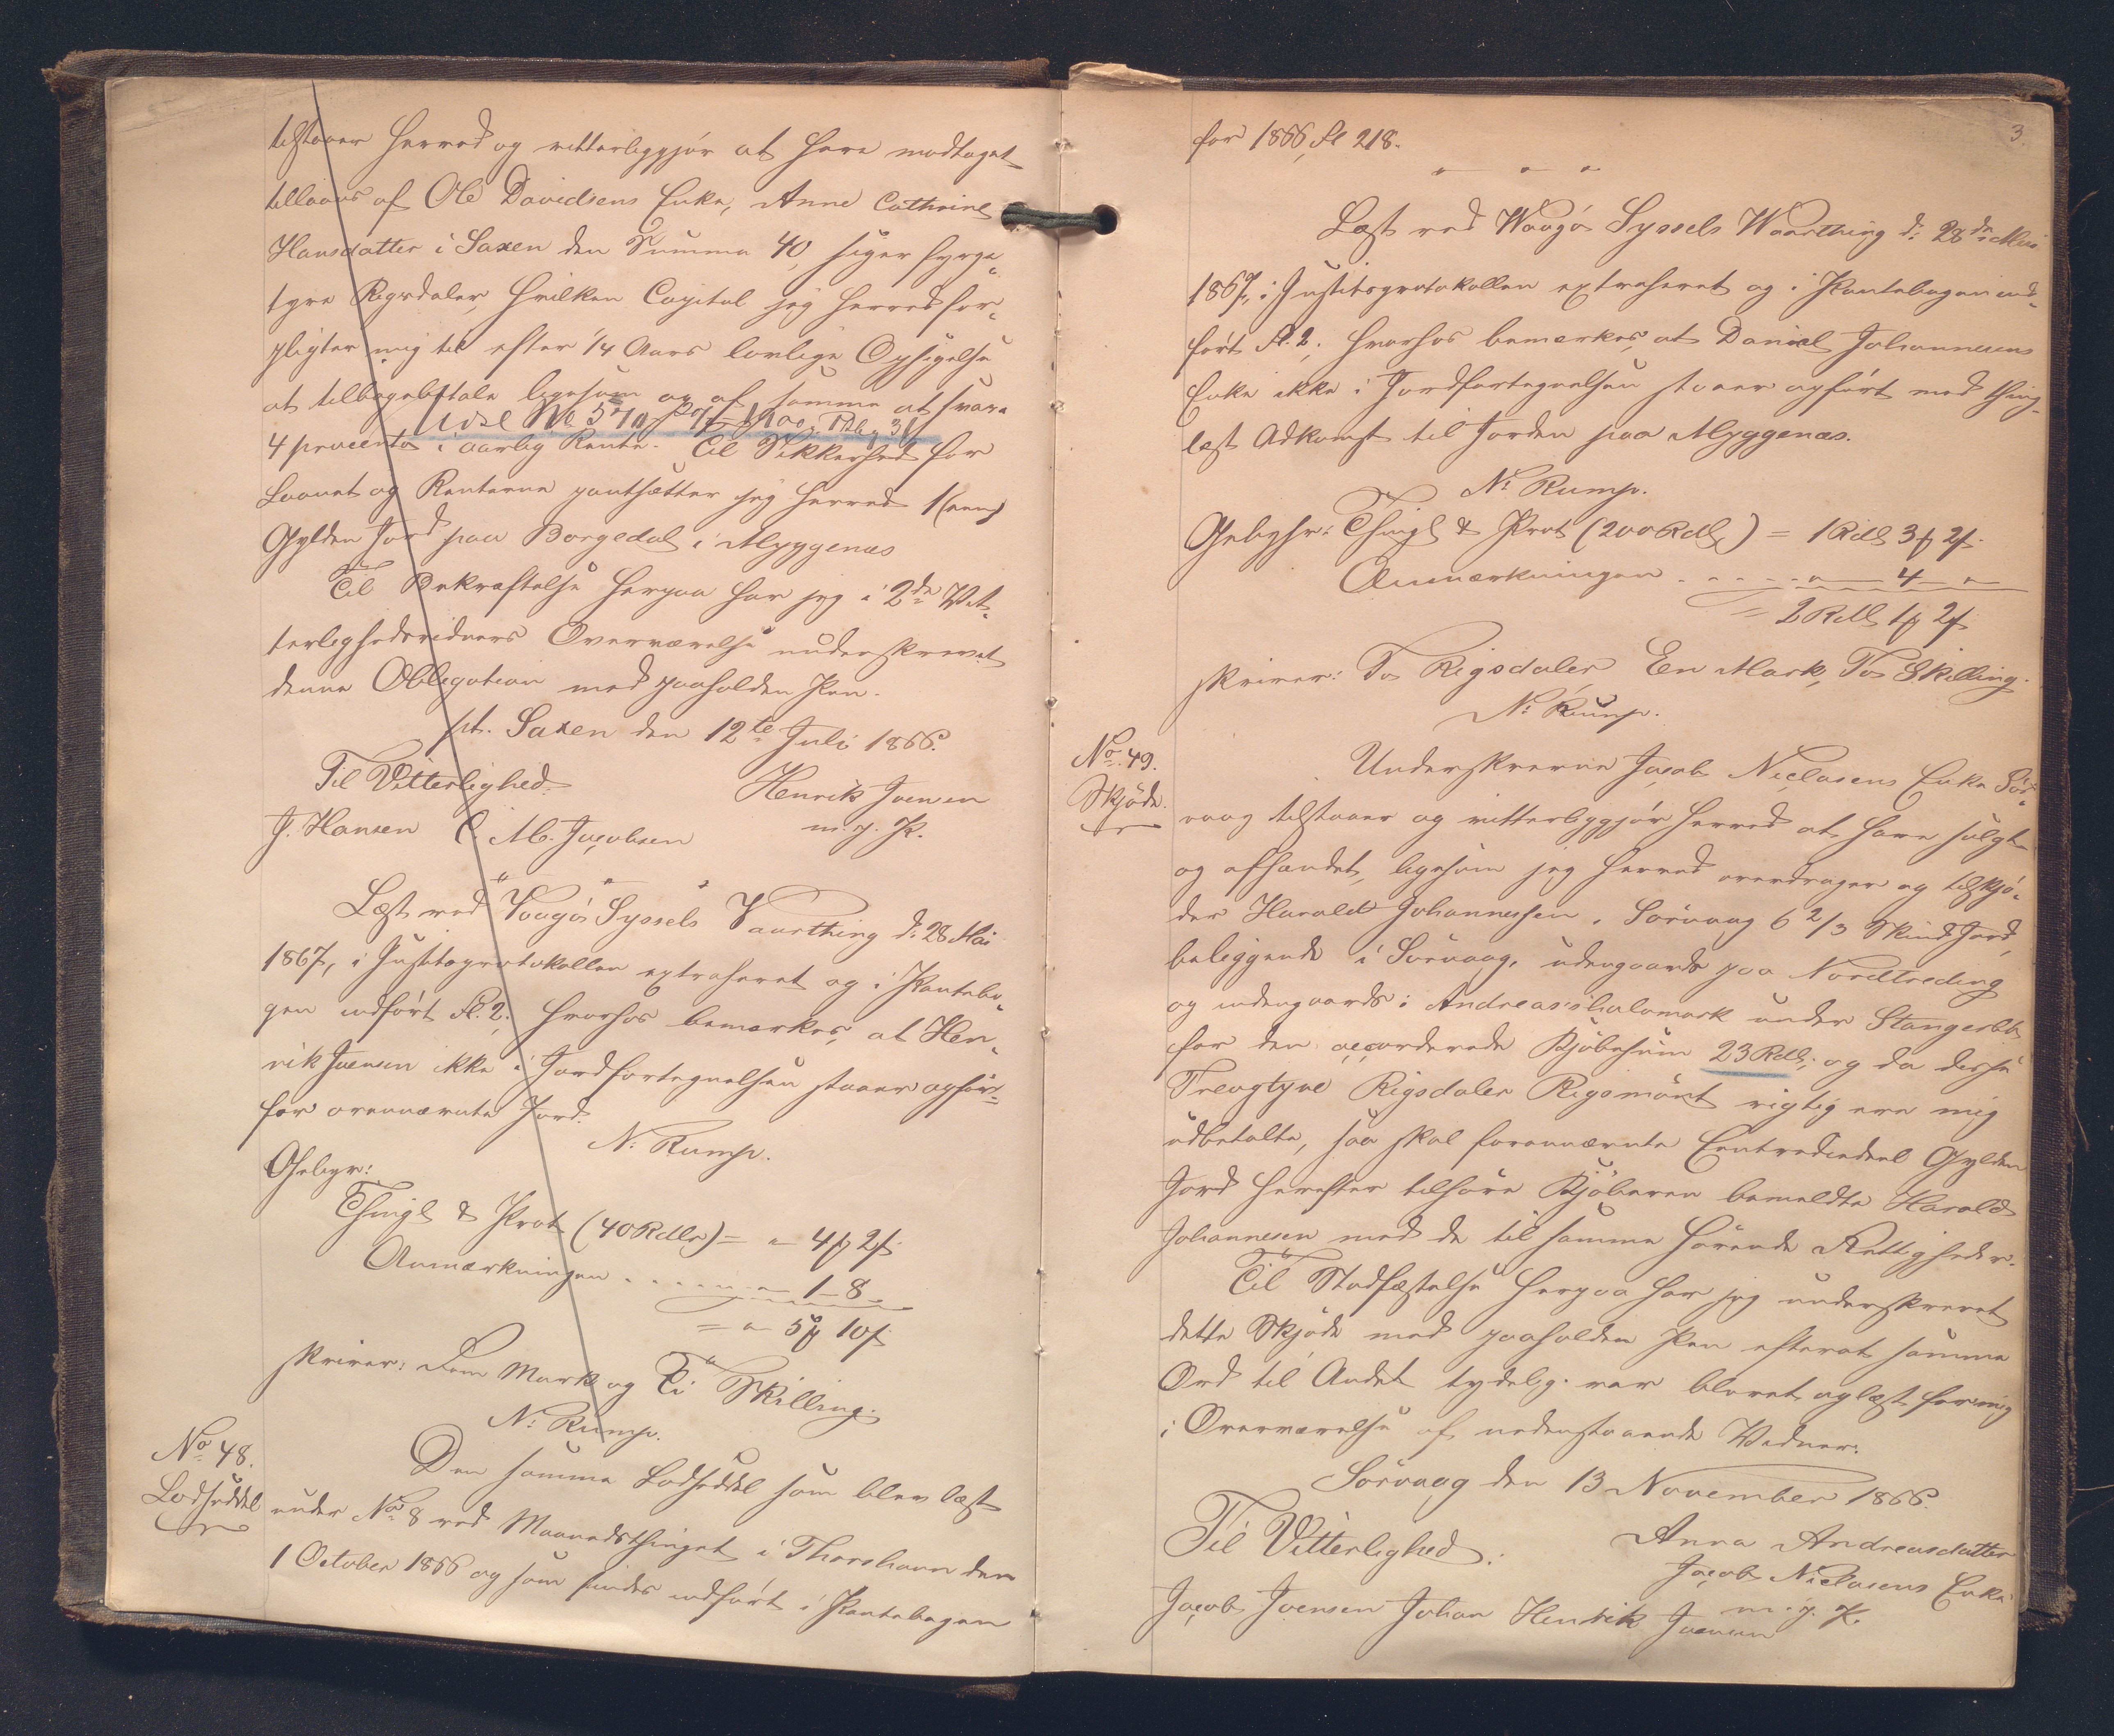 tilstaaer herved og vitterliggjør at have modtaget
tillaans af Ole Davidsens Enke, Anne Cathrine
Hansdatter i Saxen den Summa 40, siger fyrge-
tyve Rigsdaler, hvilken Capital jeg herved for-
pligter mig til efter 1/4 Aars lovlige Opsigelse
at tilbagebetale ligesom og af samme at svare
Udsl
4 procento i aarlig Rente. Til Sikkerhed for
Laanet og Renterne pantsætter jeg herved 1 (een)
Gylden Jord paa Borgedal i Myggenæs
Til Bekræftelse herpaa har jeg i 2de Vit-
terlighedsvidners Overværelse underskrevet
denne Obligation med paaholden Pen.
pt. Saxen den 12te Juli 1866.
Til Vitterlighed. Henrik Joensen
J. Hansen C M. Jacobsen m. p. P.
Læst ved Vaagø Syssels Vaarthing d. 28 Mai
1867, i Justitsprotokollen extraheret og i Pantebo-
gen indført Fl. 2; hvorhos bemærkes, at Hen-
rik Joensen ikke i Jordfortegnelsen staaer opført
for ovennævnte Jord.
N. Rump.
Gebyr:
Thingl & Prot (40 Rdlr) = " 4 ₻ 2 ß
Anmærkningen . . . . . " 1 - 8 -
= " 5 ₻ 10 ß
skriver: Fem Mark og Ti Skilling.
N. Rump.
No 48.
Lodseddel
Den samme Lodseddel som blev læst
under No 8 ved Maanedsthinget i Thorshavn den
1 October 1866 og som findes indført i Pantebogen
3.
for 1866, fl 218.
" " "
Læst ved Waagø Syssels Waarthing d. 28de Mai
1867, i Justitsprotokollen extraheret og i Pantebogen ind-
ført Fl. 2; hvorhos bemærkes, at Daniel Johannesens
Enke ikke i Jordfortegnelsen staaer opført med thing-
læst Adkomst til Jorden paa Myggenæs.
N. Rump.
Gebyhr: Thingl & Prot (200 Rdl) = 1 Rdl 3 ₻ 2 ß
Anmærkningen . . . . " 4 - "
= 2 Rdl 1 ₻ 2 ß
skriver: To Rigsdaler En Mark, To Skilling.
N. Rump.
No. 49.
Skjøde.
Underskrevne Jacob Niclasens Enke Sør-
vaag tilstaaer og vitterliggjør herved at have solgt
og afhændet, ligesom jeg herved overdrager og tilskjø-
der Harald Johannessen i Sørvaag 6 2/3 Skind Jord,
beliggende i Sørvaag, udengaards paa Nordtreding
og indengaards i Andreasishalvmark under
for den accorderede Kjøbesum 23 Rdl; og da disse
Treogtyve Rigsdaler Rigsmønt rigtig ere mig
udbetalte, saa skal forannævnte Gylden
Jord herefter tilhøre Kjøberen bemeldte Harald
Johannesen med de til samme hørende Rettigheder.
Til Stadfæstelse herpaa har jeg underskrevet
dette Skjøde med paaholden Pen efterat samme
Ord til Andet tydelig var blevet oplæst for mig
i Overværelse af nedenstaaende Vidner.
Sørvaag den 13 November 1866.
Til Vitterlighed: Anna Andreasdatter
Jacob Niclasens Enke
Jacob Joensen Johan Henrik Joensen m. p. P.